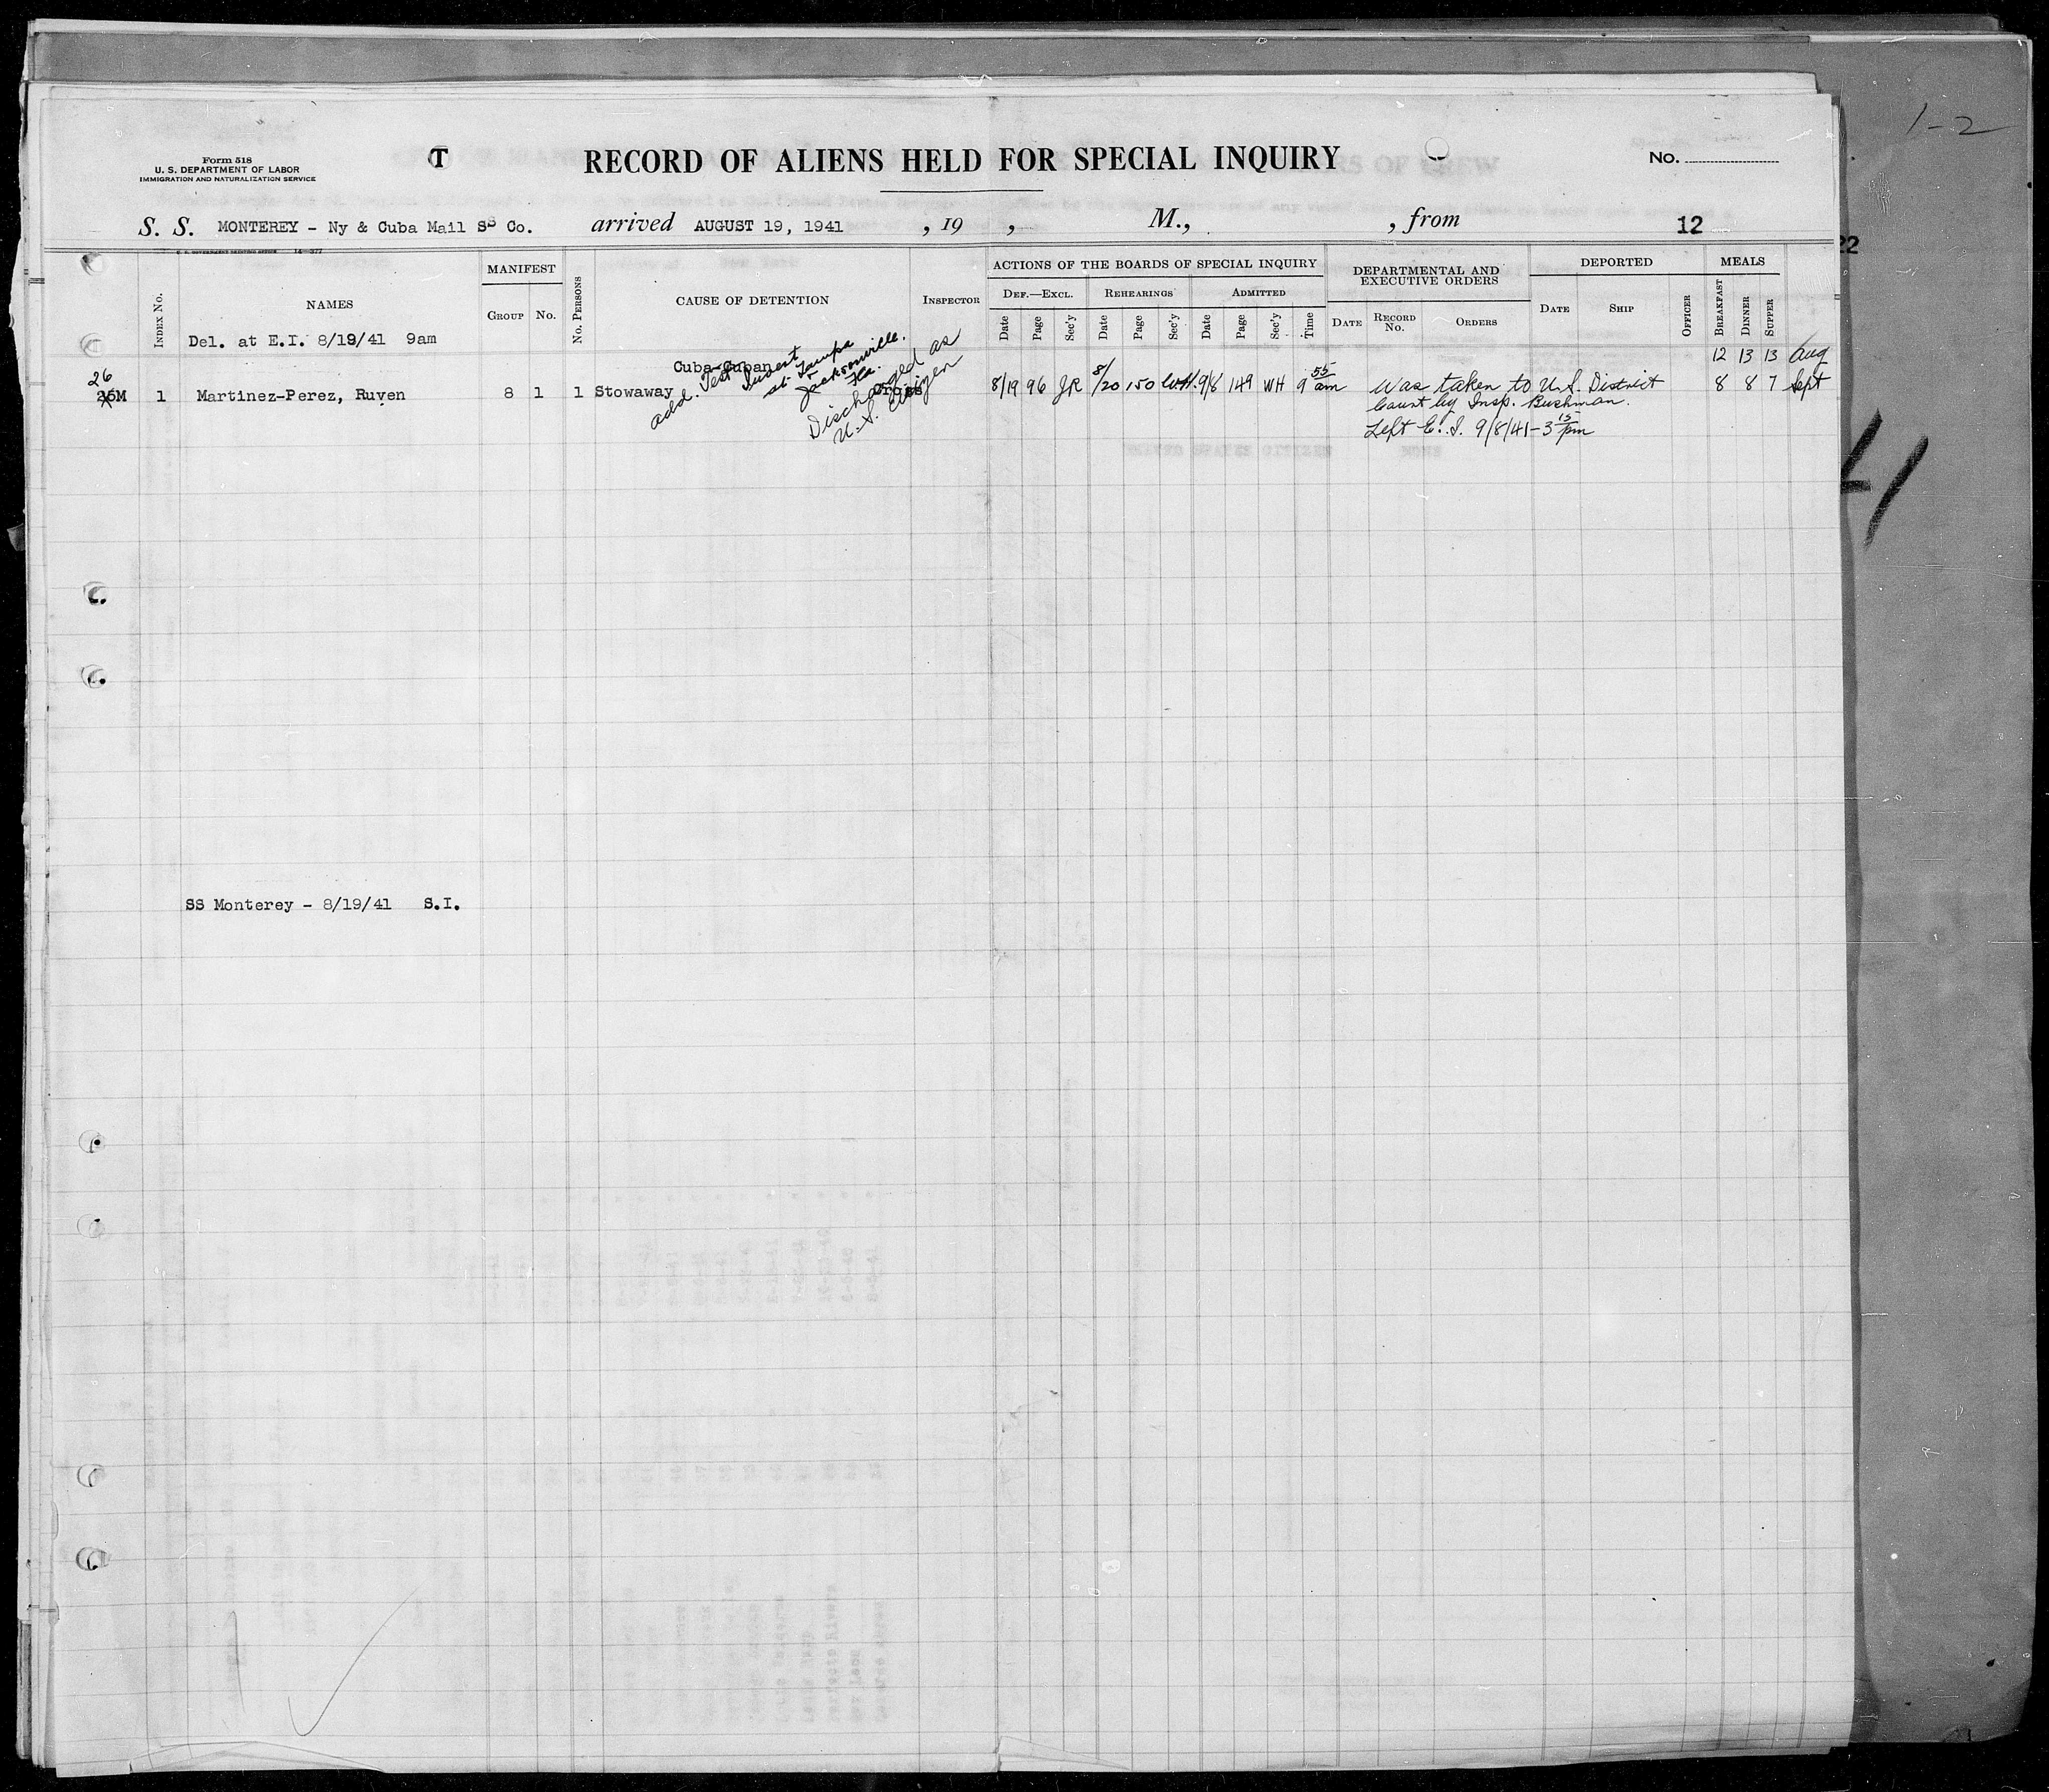 1-2
Form 518
U. S. DEPARTMENT OF LABOR
IMMIGRATION AND NATURALIZATION SERVICE
T
RECORD OF ALIENS HELD FOR SPECIAL INQUIRY
No.
S. S. MONTEREY - Ny & Cuba Mail SS Co. arrived AUGUST 19, 1941 , 19 , M., , from 12
22
INDEX No.
NAMES
MANIFEST
GROUP No.
No. PERSONS
CAUSE OF DETENTION
INSPECTOR
ACTIONS OF THE BOARDS OF SPECIAL INQUIRY
DEF.—EXCL. REHEARINGS ADMITTED
Date Page Sec'y Date Page Sec'y Date Page Sec'y Time
DEPARTMENTAL AND EXECUTIVE ORDERS
DATE RECORD No. ORDERS
DEPORTED
DATE SHIP OFFICER
MEALS
BREAKFAST DINNER SUPPER
Del. at E.I. 8/19/41 9am
12 13 13 Aug
26
M 1 Martinez-Perez, Ruyen 8 1 1 Stowaway
Cuba-Cuban
add. Test
at Tampa
Jacksonville.
Fla.
Discharged as
U.S. Citizen
8/19 96 JR 8/20 150 WH. 9/8 149 WH 9 55 am
Was taken to U.S. District
Court by Insp. Bushman.
Left E.I. 9/8/41-3 15 pm
8 8 7 Sept
41
SS Monterey - 8/19/41 S.I.